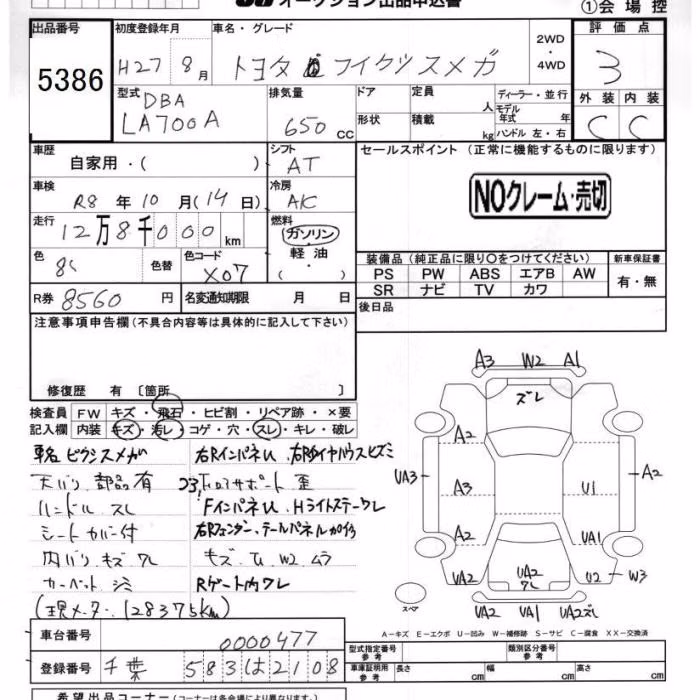 オークション出品申込書 ①会場控
出品番号 初度登録年月 車名・グレード 2WD・4WD 評価点
5386 H27 8月 トヨタ フイクシスメガ 3
型式 DBA LA700A 排気量 650cc ドア 定員 人 ディーラー・並行 外装 内装
形状 積載 kg モデル年式 年 ハンドル 左・右 C C
車歴 自家用・( ) シフト AT セールスポイント (正常に機能するものに限ります)
車検 R8年10月(14日) 冷房 A/C NOクレーム・売切
走行 12万8千000km 燃料 ガソリン・軽油・( )
色 色替 色コード X07 装備品(純正品に限り○をつけてください) 新車保証書
PS PW ABS エアB AW 有・無
SR ナビ TV カワ
R券 8560円 名変通知期限 月 日 後日品
注意事項申告欄(不具合内容等は具体的に記入して下さい)
修復歴 有〔箇所 〕
検査員 FW キズ・飛石・ヒビ割・リペア跡・×要
記入欄 内装 キズ・汚レ・コゲ・穴・スレ・キレ・破レ
車名ピクシスメガ 右Rインパネ
天バリ 部品有 サポート 歪
ハンドル スレ Fインパネ Hライトステーワレ
シートカバー付 右Rフェンダー、テールパネル
内バリ キズ ワレ キズ W2 ムラ
カーペット シミ Rゲート内ワレ
(現メーター 128375km)
A3 W2 A1
ズレ
A2
UA3 A3 U1 A2
A2 UA1
UA2 UA2 ワレ U2 W3
スペア UA2 UA1 UA2ズレ
A−キズ E−エクボ U−凹み W−補修跡 S−サビ C−腐食 XX−交換済
車台番号 0000477 型式指定番号 参考 類別区分番号 参考
登録番号 千葉 583 は 2108 車庫証明用 参考 長さ cm 幅 cm 高さ cm
希望出品コーナー(コーナーは各会場により異なります)